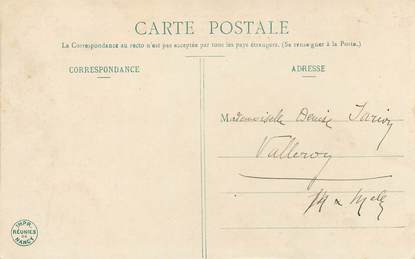 CARTE POSTALE
La Correspondance au recto n'est pas acceptée par tous les pays étrangers. (Se renseigner à la Poste.)
CORRESPONDANCE
ADRESSE
Mademoiselle Denise
Valleroy
M & Melle
IMPR.
RÉUNIES
DE
NANCY